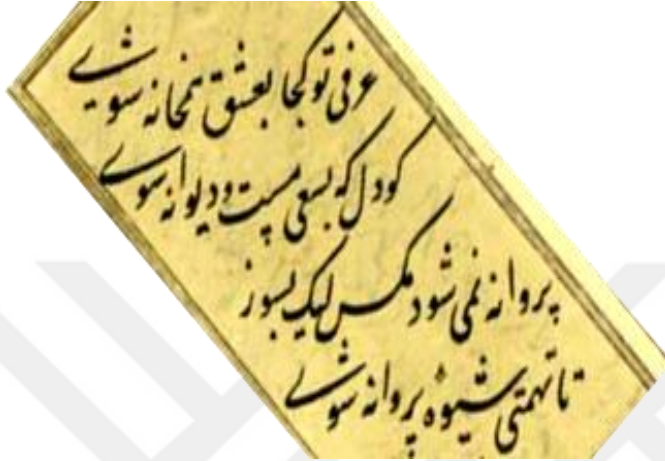 عرفی تو کجا بعشق همخانه شوی
کو دل که بسعی مست و دیوانه شوی
پروانه نمی شود مکس لیک بسوز
تا تهمتی شیوه پروانه شوی